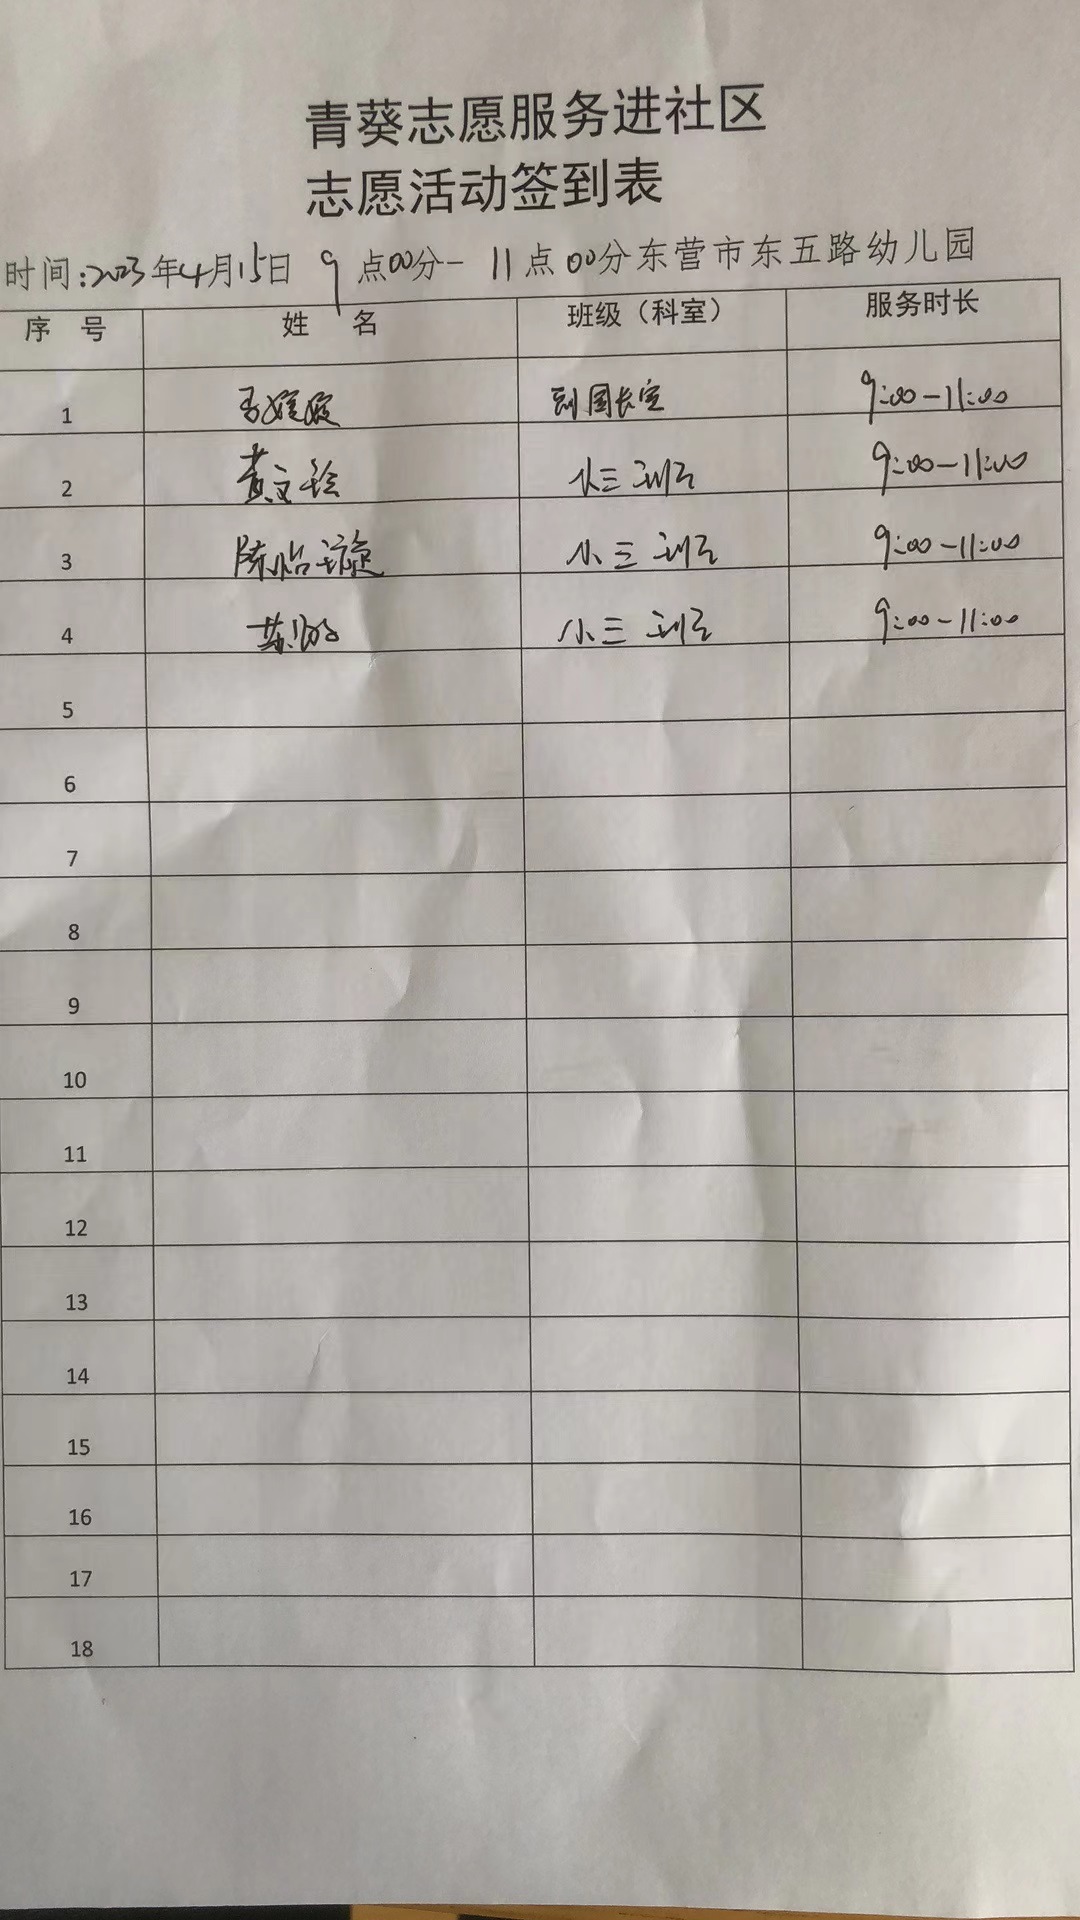 青葵志愿服务进社区
志愿活动签到表
时间:2023年4月15日 9点00分- 11点00分东营市东五路幼儿园
序 号 姓 名 班级（科室） 服务时长
1 副园长室 9:00-11:00
2 黄文玲 小三班 9:00-11:00
3 陈怡璇 小三班 9:00-11:00
4 苏 小三班 9:00-11:00
5
6
7
8
9
10
11
12
13
14
15
16
17
18